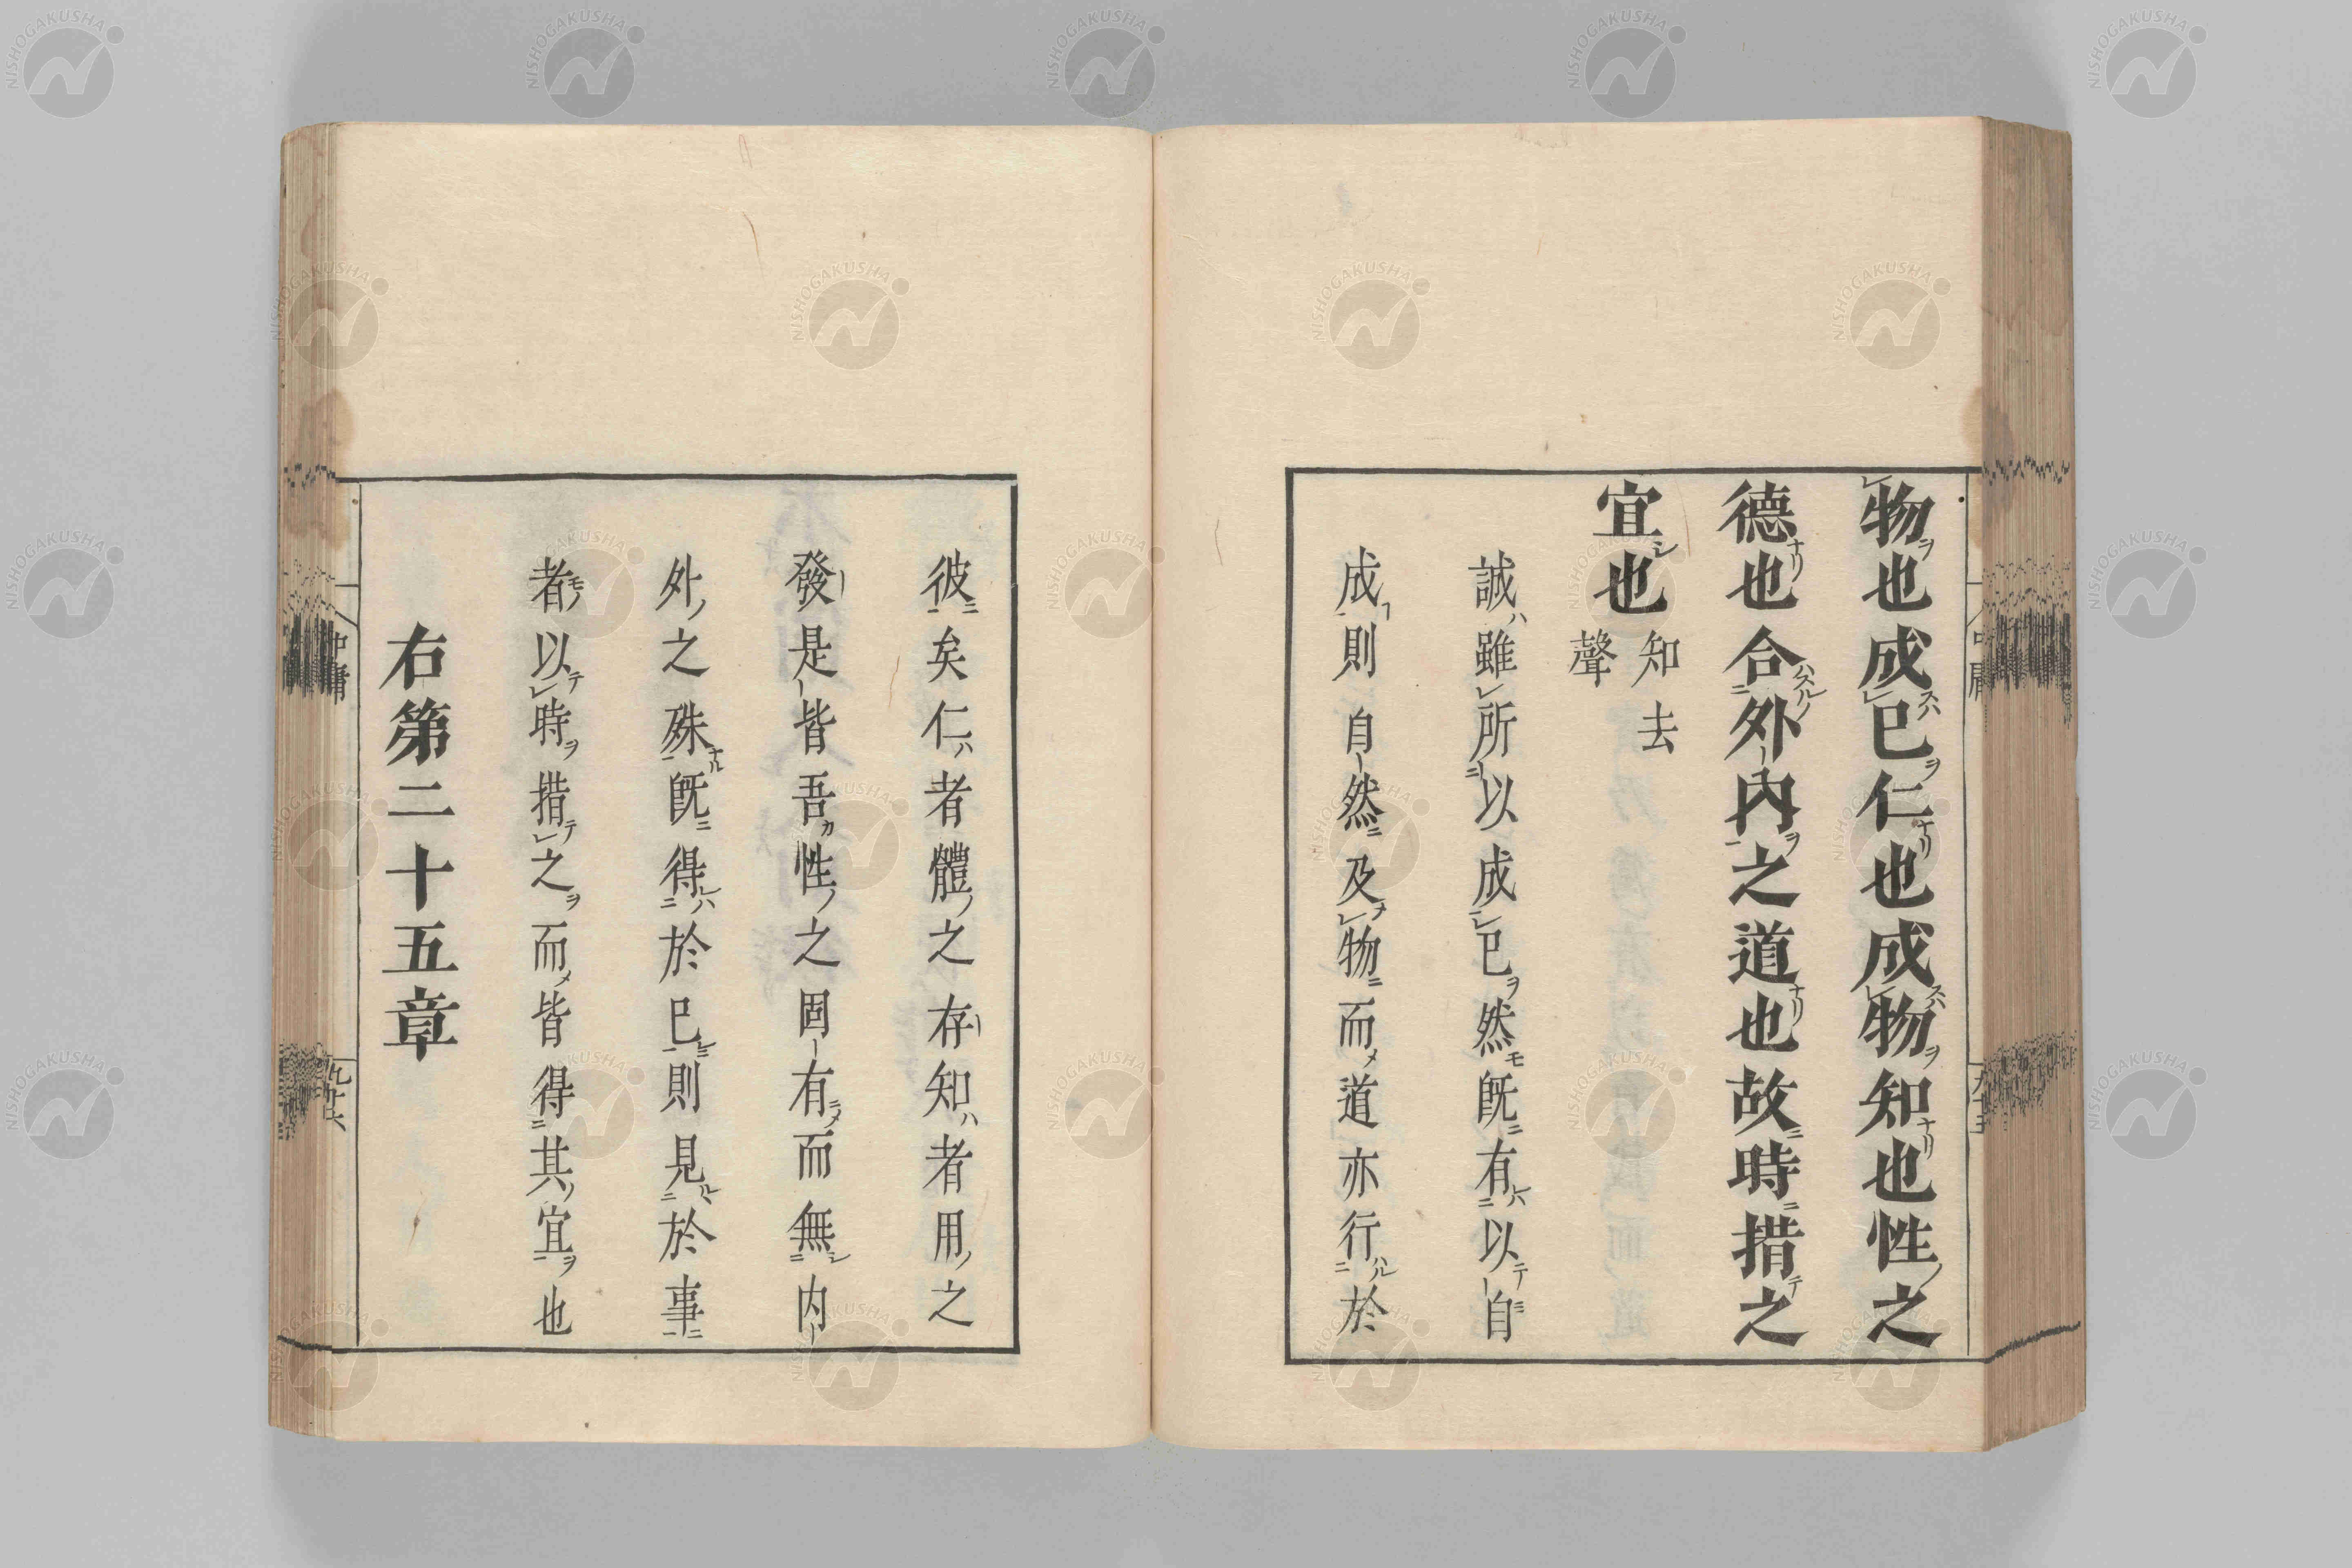 物也成已仁也成物知也性之
德也合外內之道也故時措之
宜也知去
聲
誠雖所以成已然旣有以自
成則自然及物而道亦行於
彼矣仁者體之存知者用之
發是皆吾性之固有而無內
外之殊旣得於已則見於事
者以時措之而皆得其宜也
右第二十五章
中庸
NISHOGAKUSHA